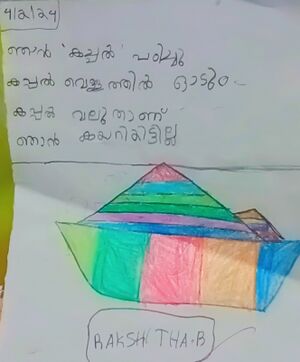 4/2/24
ഞാൻ 'കപ്പൽ' പഠിച്ചു
കപ്പൽ വെള്ളത്തിൽ ഓടും
കപ്പൽ വലുതാണ്
ഞാൻ കയറിയിട്ടില്ല
RAKSHITHA.B